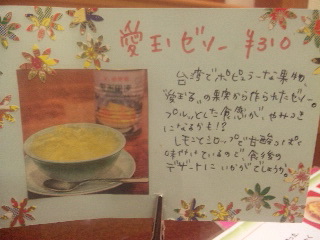 愛玉ゼリー ¥310
台湾でポピュラーな果物
"愛玉子"の果実から作られたゼリー。
プルッとした食感が、やみつき
になるかも!?
レモンシロップで甘酸っぱく
味付けているので食後の
デザートにいかがでしょうか。